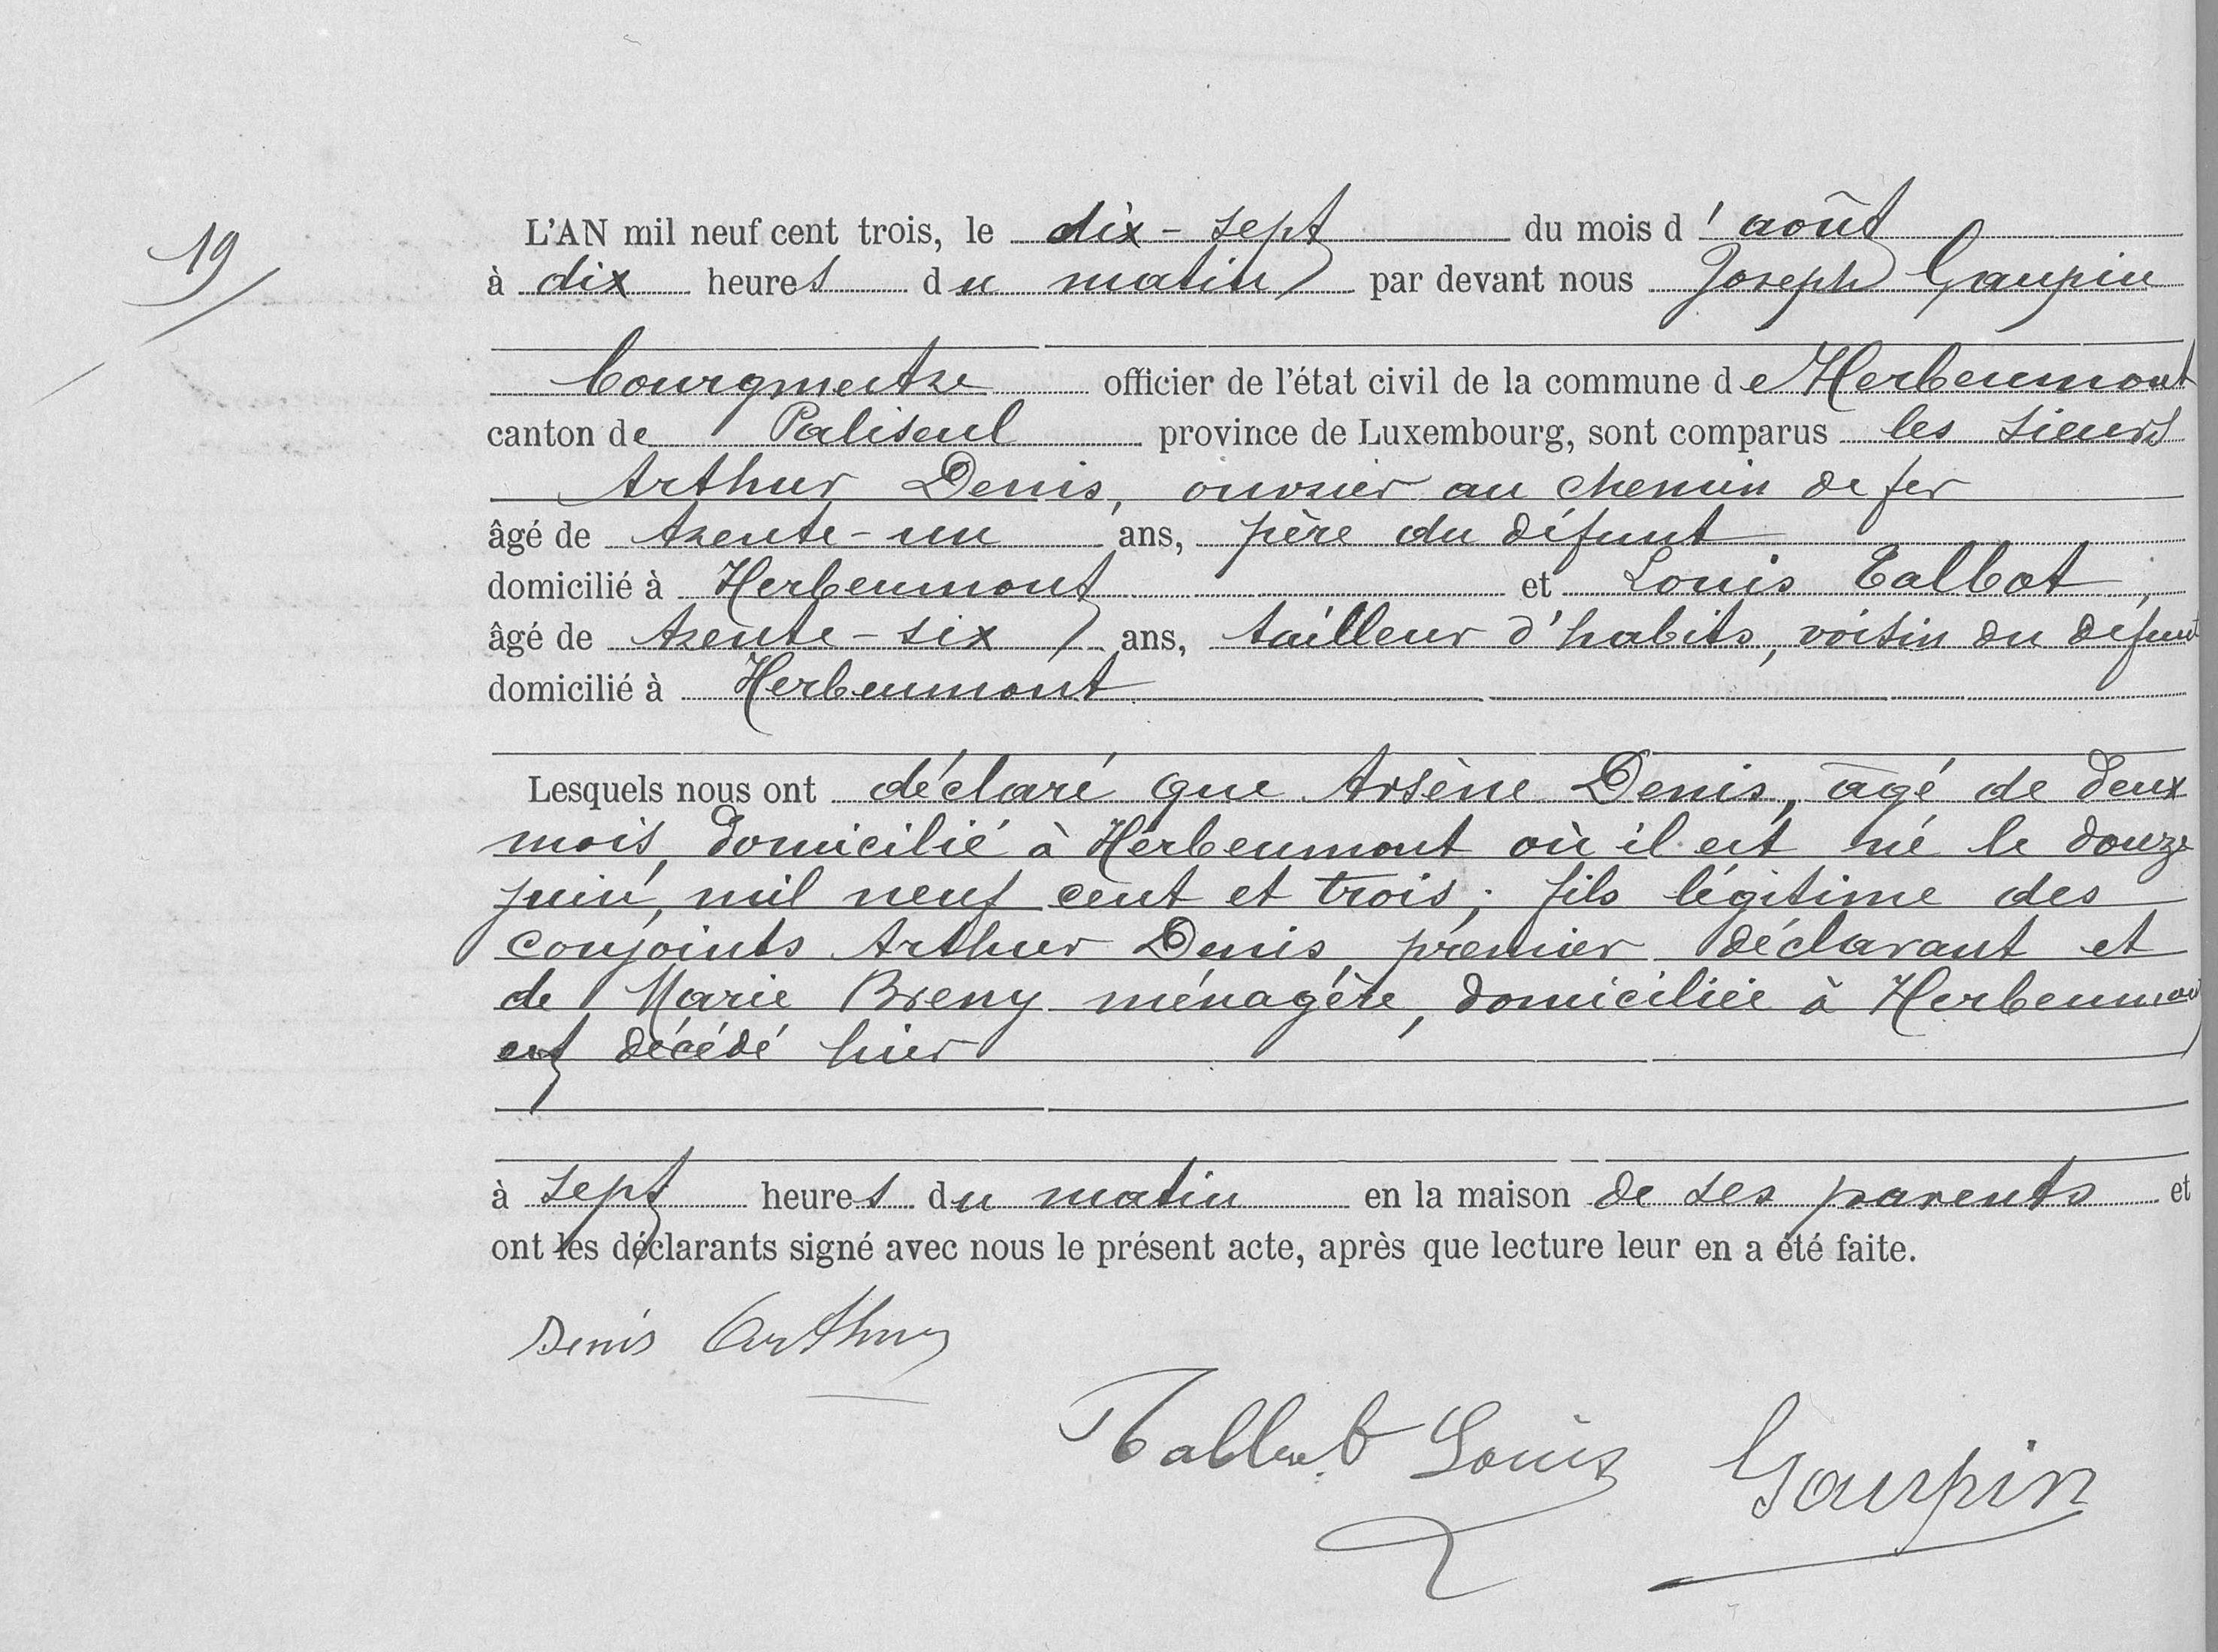 19
L'AN mil neuf cent trois, le dix-sept du mois d'août
à dix heures du matin par devant nous Joseph Gaupin
bourgmestre officier de l'état civil de la commune de Herbeumont
canton de Paliseul province de Luxembourg, sont comparus les sieurs
Arthur Denis, ouvrier au chemin de fer
âgé de trente-un ans, père du défunt
domicilié à Herbeumont et Louis Talbot,
âgé de trente-six ans, tailleur d'habits, voisin du défunt
domicilié à Herbeumont
Lesquels nous ont déclaré que Arsène Denis, âgé de deux
mois, domicilié à Herbeumont où il est né le douze
juin, mil neuf cent et trois; fils légitime des
conjoints Arthur Denis, premier déclarant et
de Marie Breny ménagère, domiciliée à Herbeumont
est décédé hier
à sept heures du matin en la maison de ses parents et
ont les déclarants signé avec nous le présent acte, après que lecture leur en a été faite.
Denis Arthur
Talbot Louis Gaupin